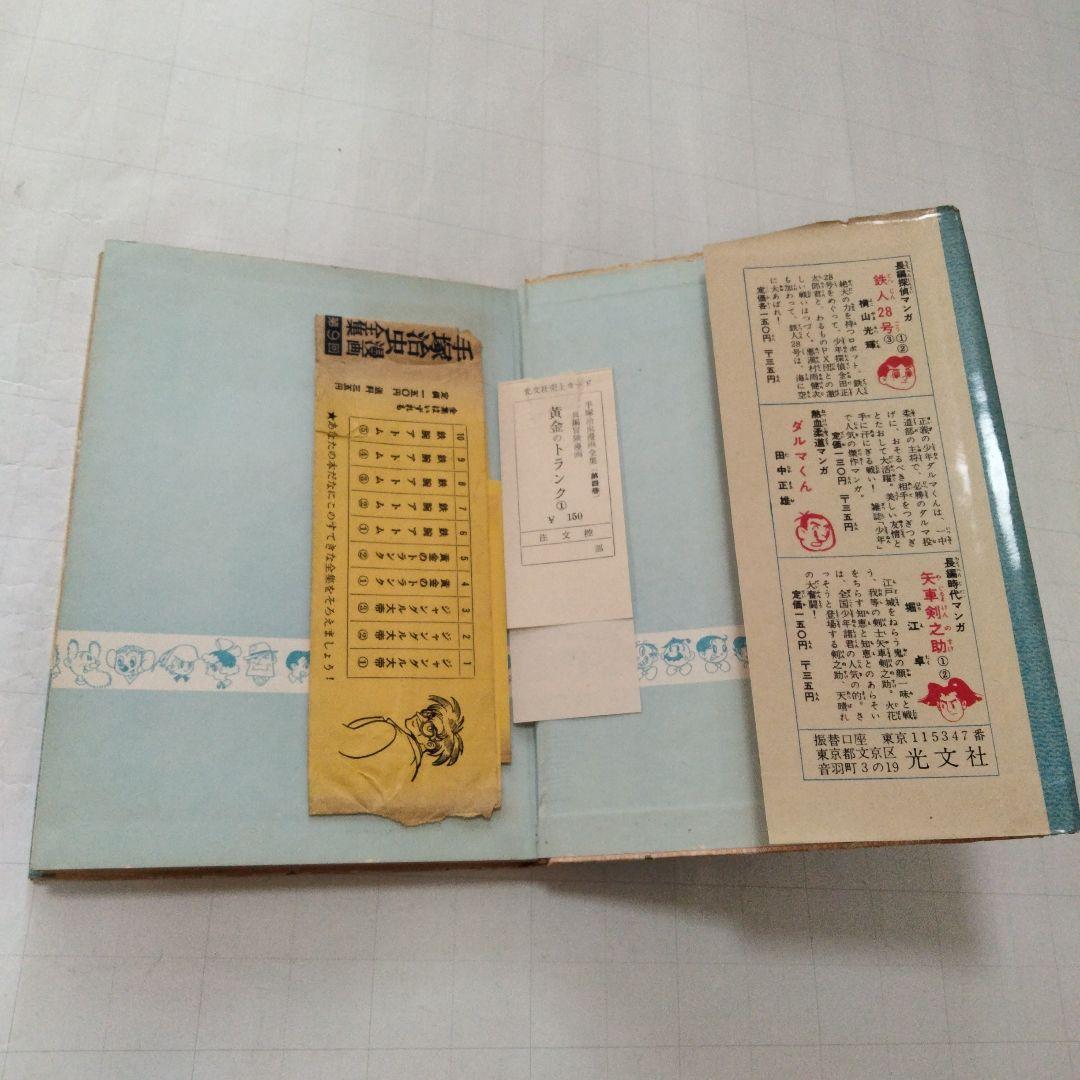 手塚治虫漫画全集
第9回
全集はいずれも
定価一五〇円 送料三五円
10 鉄腕アトム⑤
9 鉄腕アトム④
8 鉄腕アトム③
7 鉄腕アトム②
6 鉄腕アトム①
5 黄金のトランク②
4 黄金のトランク①
3 ジャングル大帝③
2 ジャングル大帝②
1 ジャングル大帝①
★あなたの本だなにこのすてきな全集をそろえましょう!
光文社売上カード
手塚治虫漫画全集
長編冒険漫画
黄金のトランク①
¥ 150
注文控
部
長編探偵マンガ
鉄人28号①②③
横山光輝
絶大の力を持つロボット、鉄人
28号をめぐって、少年探偵金田正
太郎君と、わるものPX団との激
しい戦いはつづく。悪漢村雨健次
も加わって、鉄人28号は、海に空
に大あばれ!
定価各一五〇円 〒三五円
熱血柔道マンガ
ダルマくん
田中正雄
正義の少年ダルマくんは、一中
柔道部の主将で、必勝のダルマ投
げに、おそるべき相手をつぎつぎ
とたおして大活躍。美しい友情と
手に汗にぎる戦い! 雑誌「少年」
で人気の傑作マンガ。
定価一三〇円 〒三五円
長編時代マンガ
矢車剣之助①②
堀江卓
江戸城をねらう鬼の顔一味と戦
う、我等の剣士矢車剣之助。火花
をちらす知恵と知恵とのあらそい
は、全国少年諸君の人気の的。さ
っそうと登場する剣之助、天晴れ
の大奮闘!
定価一五〇円 〒三五円
振替口座 東京115347番
東京都文京区
音羽町3の19
光文社